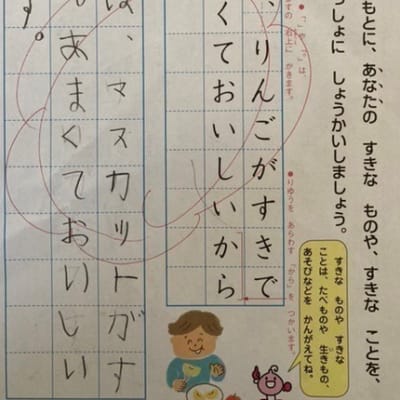 もとに、あなたの すきな ものや、すきな ことを、
っしょに しょうかいしましょう。
すきな ものや すきな
ことは、たべものや 生きもの、
あそびなどを かんがえてね。
●「、」や「。」は、
ますの 右上に かきます。
●りゆうを あらわす 「から」を つかいます。
、りんごがすきで
くておいしいから
は、マスカットがす
あまくておいしい
す。